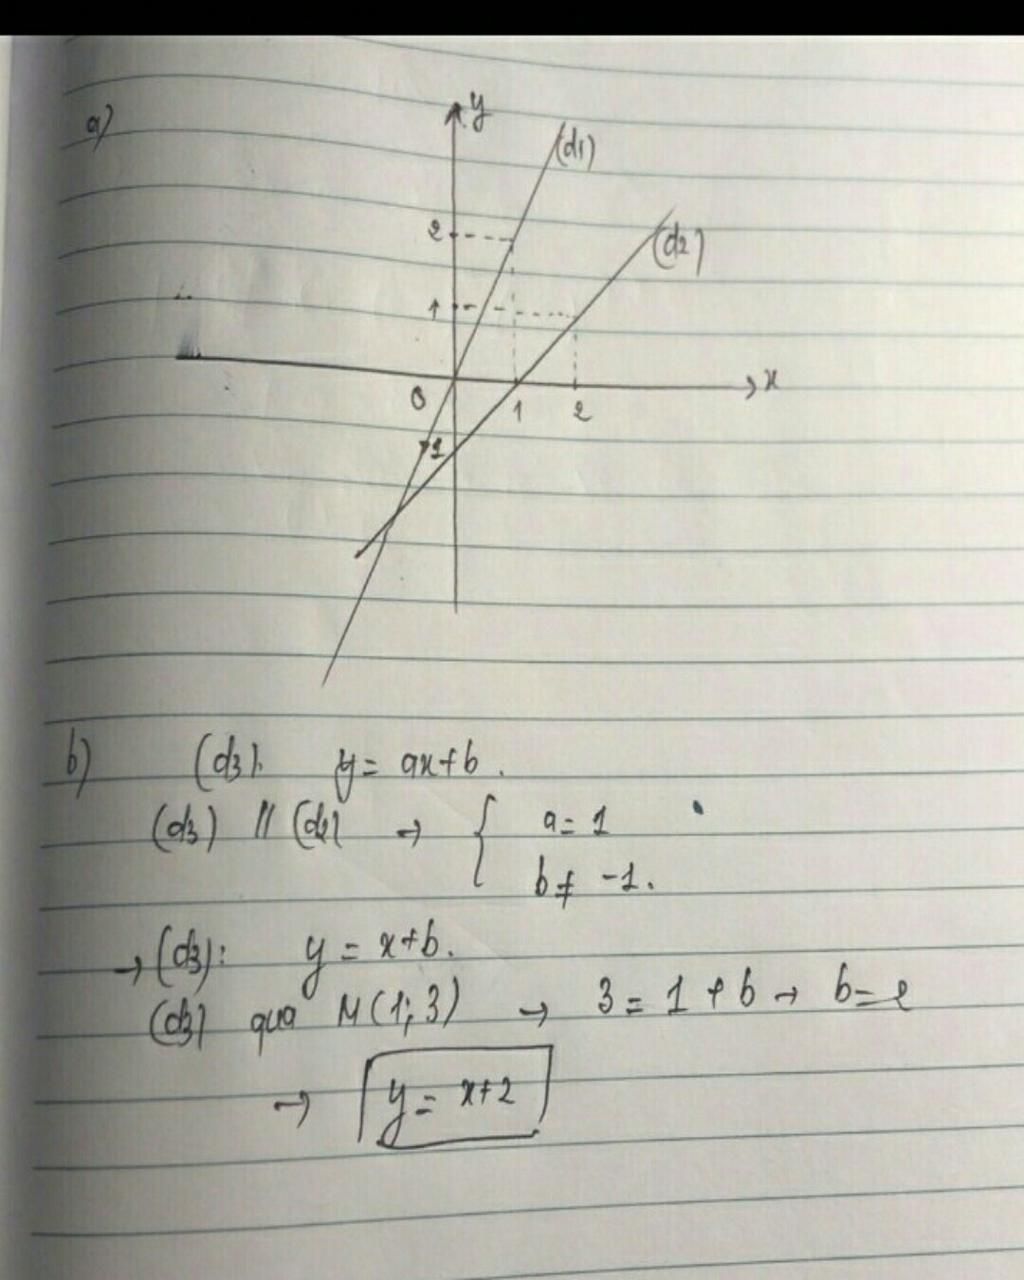 a)
y
(d1)
2
(d2)
1
x
0
1
2
-1
b) (d3): y = ax+b.
(d3) // (d2) → { a = 1
b ≠ -1.
→ (d3): y = x+b.
(d3) qua M(1; 3) → 3 = 1 + b → b = 2
→ y = x+2